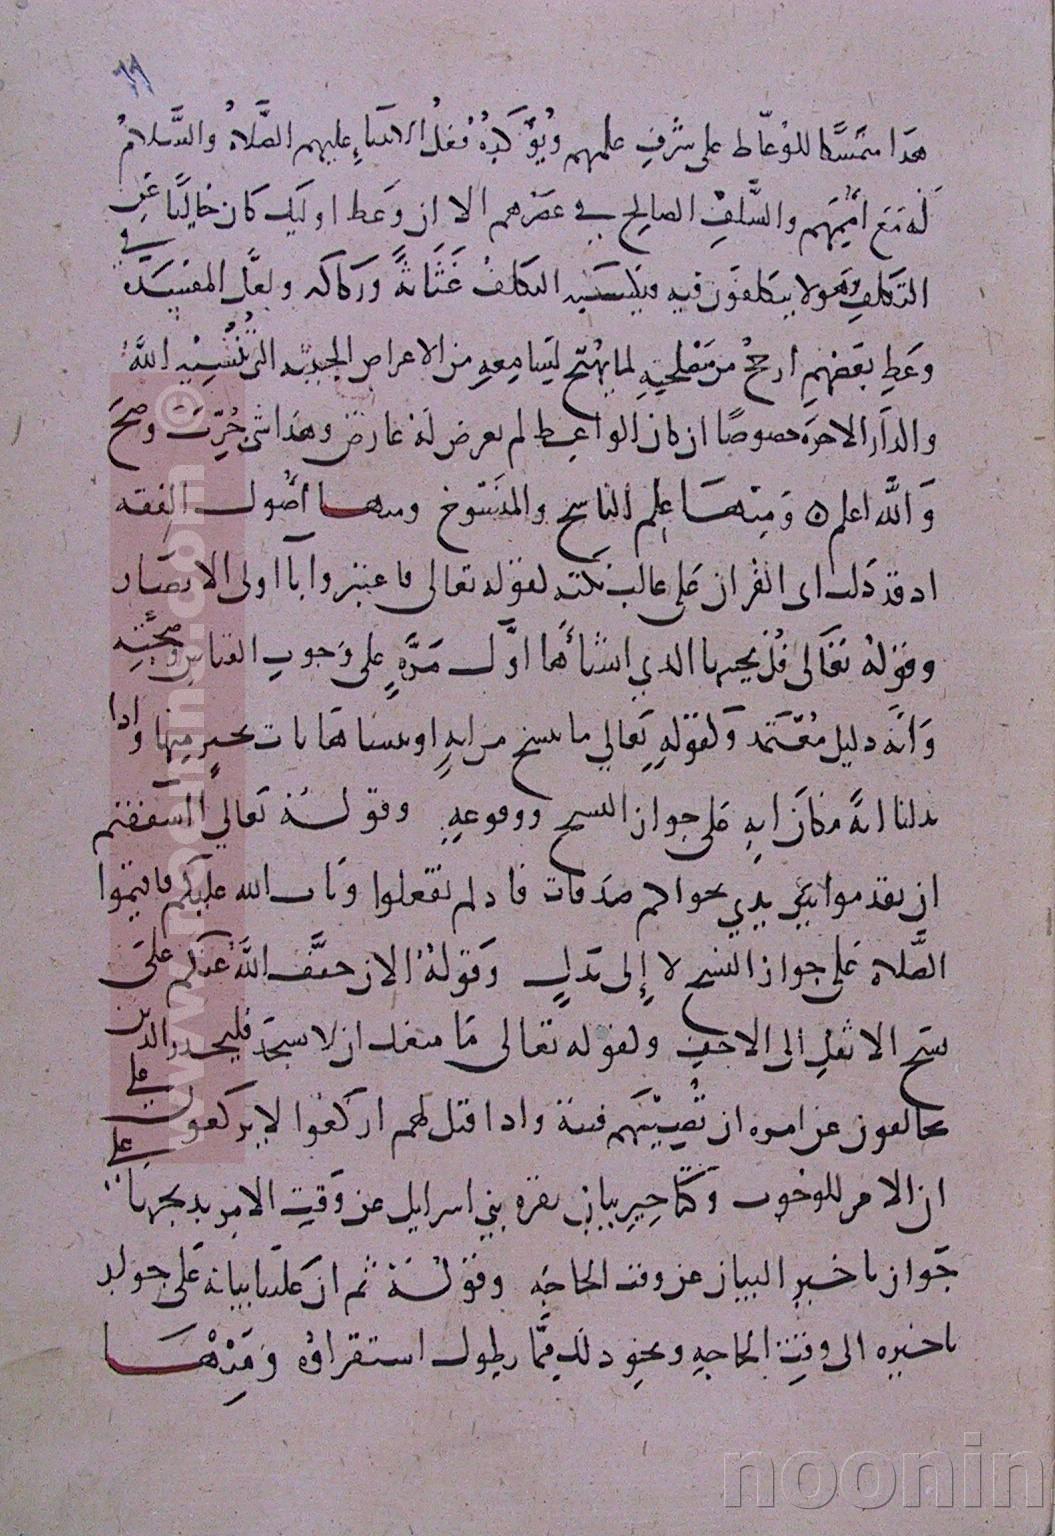 ٦٩
هدا متمسكا للوعاط على شرف علمهم ويؤكده فعل الانبياء عليهم الصلاة والسلام
له مع اممهم والسلف الصالح في عصرهم الا ان وعط اوليك كان خاليا عن
التكلف وهولا يتكلفون فيه فيكسبه التكلف غثاثة وركاكه ولعل المفسدة في
وعط بعضهم ارجح من مصلحته لما يهيج لسامعه من الاعراض الخبيثه التي تنسيه الله
والدار الاخرة خصوصا ان كان الواعط لم يعرض له عارض وهدا شي جرب وصح
والله اعلم ومنها علم الناسخ والمنسوخ ومنها اصول الفقه
اد قد دلت اي القران على غالب نكته لقوله تعالى فاعتبروا يا اولى الابصار
وقوله تعالى قل يحييها الدي انشاها اول مرة على وجوب القياس وصحته
وانه دليل معتمد ولقوله تعالي ما ننسخ من اية او ننساها نات بخير منها وادا
بدلنا اية مكان اية على جواز النسخ ووقوعه وقوله تعالي ااشفقتم
ان تقدموا بين يدي نجواكم صدقات فاد لم تفعلوا وتاب الله عليكم فاقيموا
الصلاة على جواز النسخ لا إلى بدل وقوله الان خفف الله عنكم على
نسخ الاثقل الى الاخف ولقوله تعالى ما منعك ان لا تسجد فليحدر الدين
يخالفون عن امره ان تصيبهم فتنة وادا قيل لهم اركعوا لا يركعون على
ان الامر للوجوب وكتاخير بيان بقرة بني اسرايل عن وقت الامر بدبحها على
جواز تاخير البيان عن وقت الحاجه وقوله ثم ان علينا بيانه على جواز
تاخيره الى وقت الحاجة ونحو دلك مما يطول استقراؤه ومنها
www.noonin5.com ©
noonin